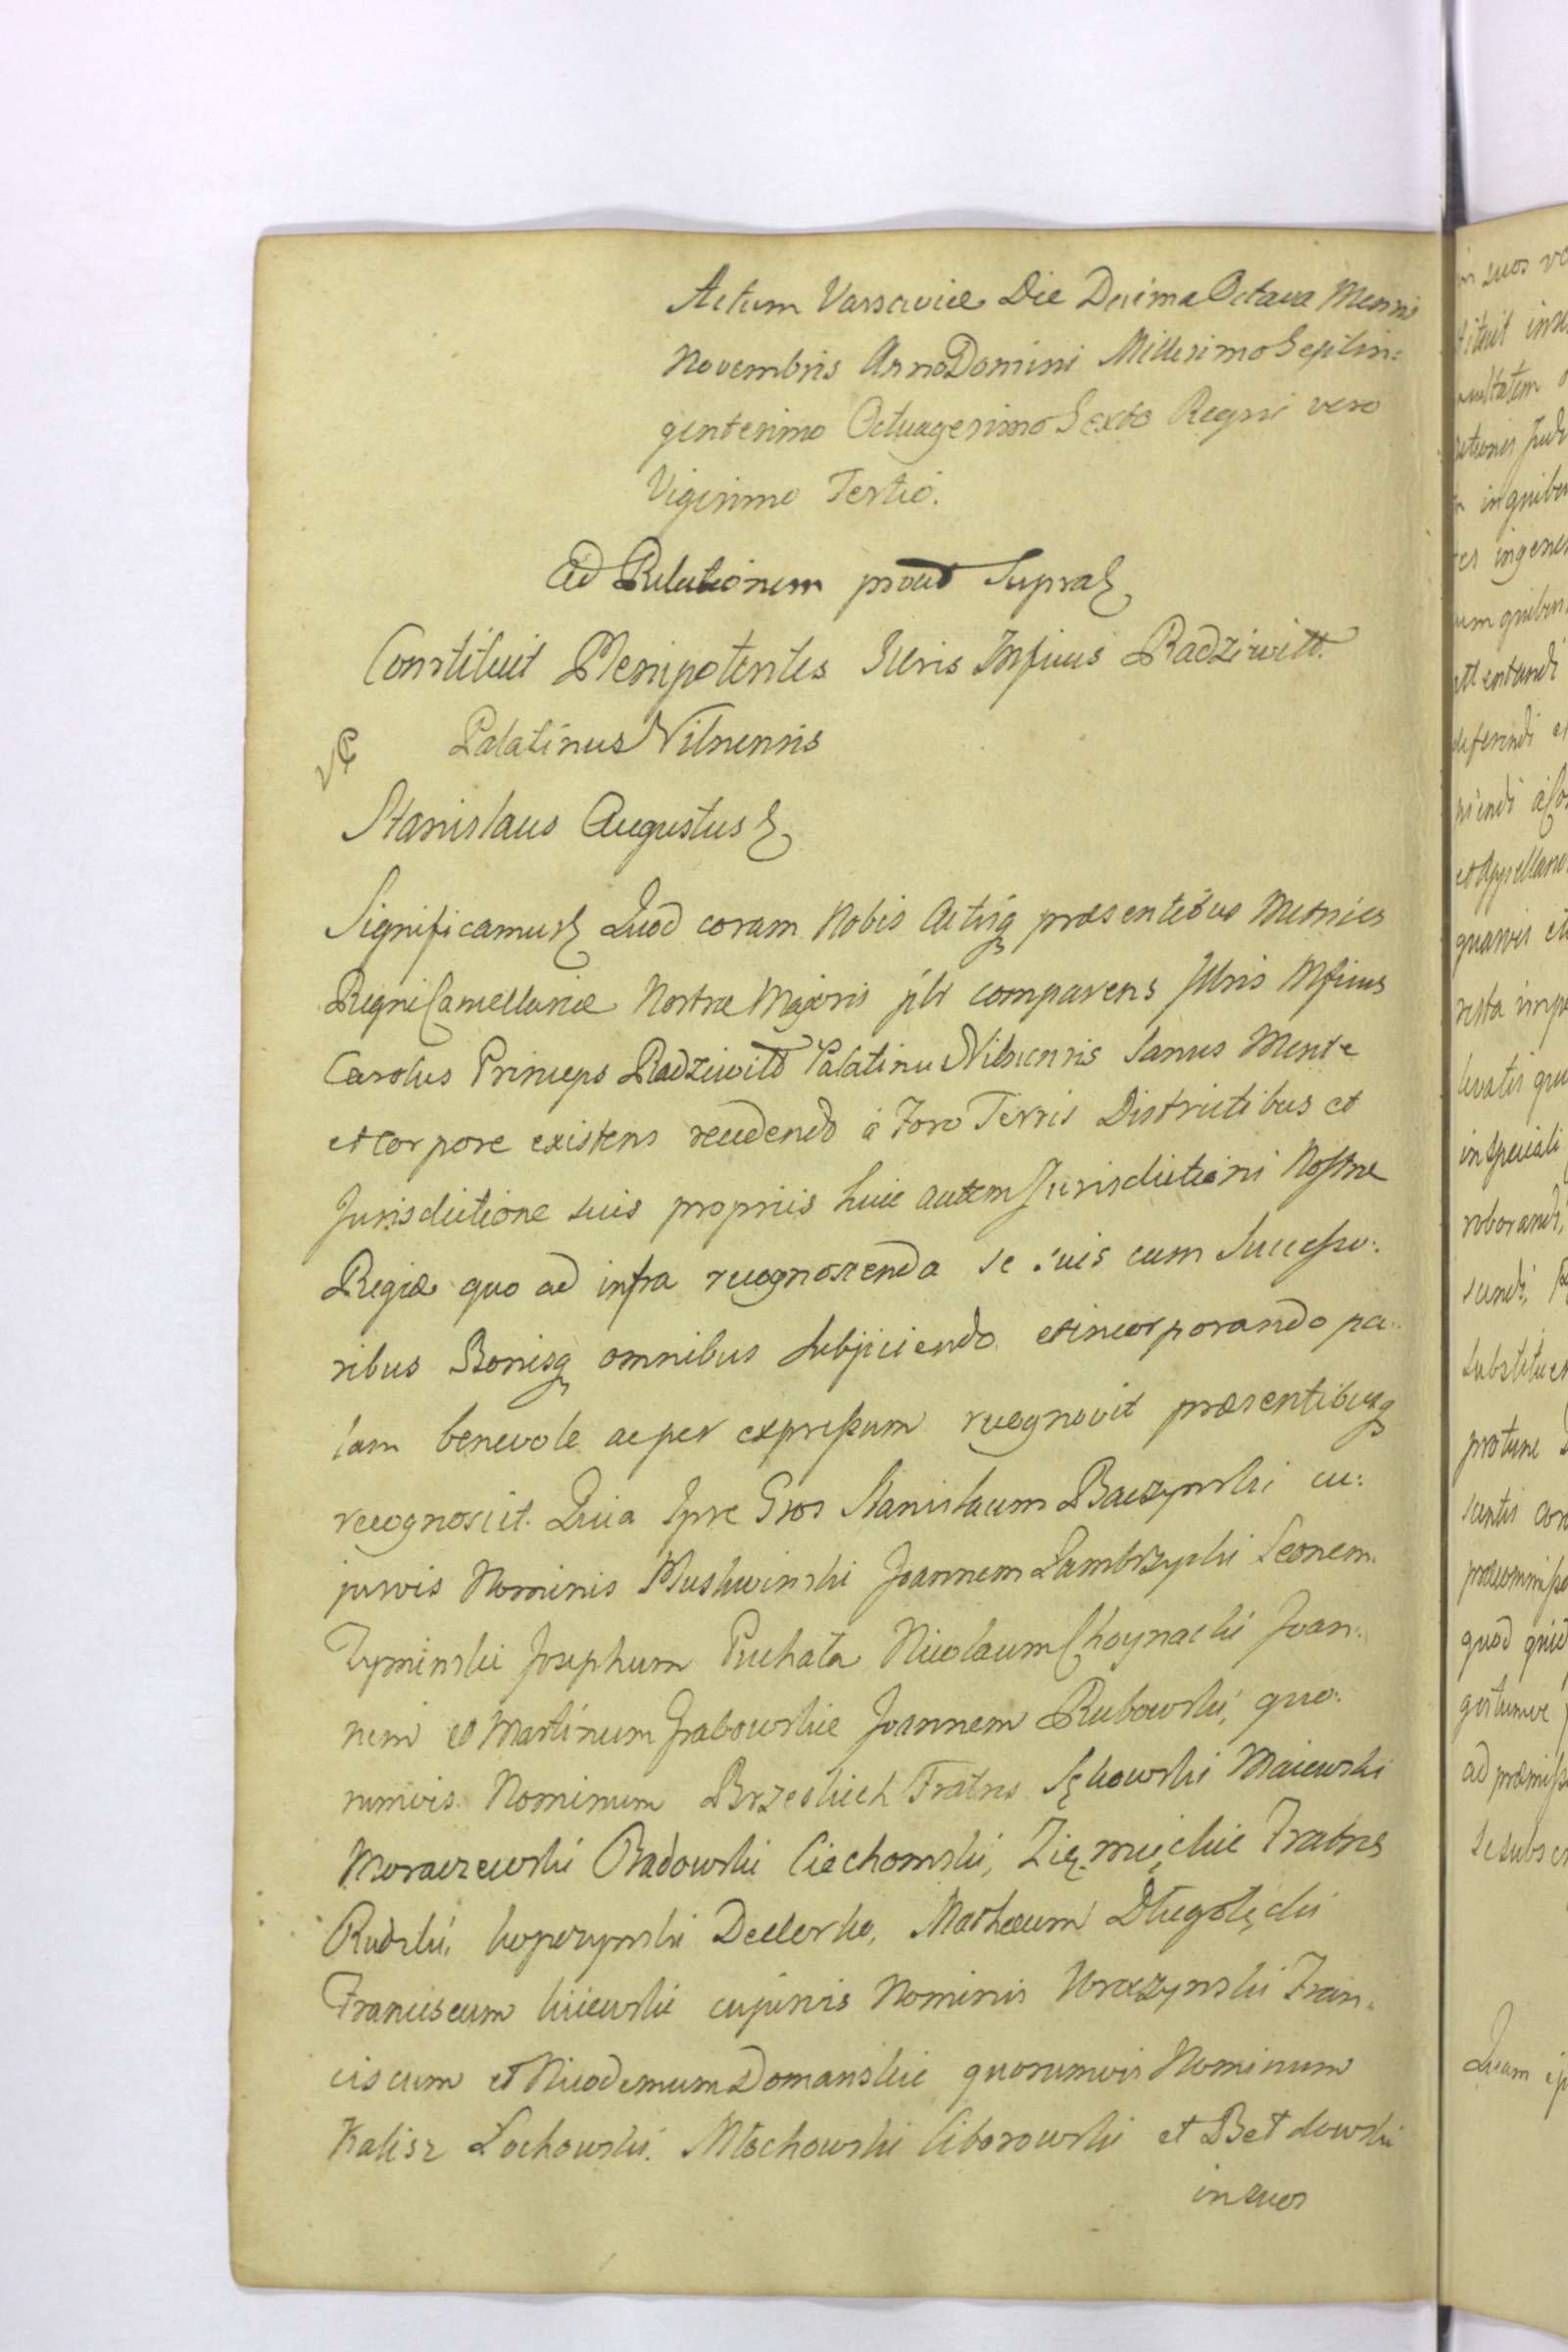 Actum Varsaviæ Die Decima Octava Mensis
Novembris Anno Domini Millesimo Septin:
gentesimo Octuagesimo Sexto Regni vero
Vigesimo Tertio.
Ad Relationem prout Supra
Constituit Plenipotentes Illris Mfinus Radziwiłł
Palatinus Vilnensis
Stanislaus Augustus
Significamus Quod coram Nobis Actisq præsentibus Metrices
Regni Cancellariæ Nostræ Majoris plr comparens Illris Mfinus
Carolus Princeps Radziwiłł Palatinus Vilnensis Sanus Mente
et Corpore existens recedendo à Foro Terris Districtibus et
Jurisdictione suis propriis huic autem Jurisdictioni Nostræ
Regiæ quo ad infra recognoscenda se suis cum Successo:
ribus Bonisq omnibus subjiciendo et incorporando pa:
lam benevole ac per expressum recognovit præsentibusq
recognoscit. Quia Ipse Gsos Stanislaum Baczynski cu:
jusvis Nominis Pluskwinski Joannem Zambrzycki Leonem
Tyminski Josephum Puchata Nicolaum Choynacki Joan:
nem et Martinum Grabowskie Joannem Rubowski, quo:
rumvis Nominum Brzeskich Fratres Sękowski Maiewski
Moraczewski Radowski Ciechomski, Fratres
Rudzki, Kopczynski Dederko, Mathæum Długołęcki
Franciscum Kiiewski cujusvis Nominis Fran:
ciscum et Nicodemum Domanskie quorumvis Nominum
Kalisz Łochowski. Młochowski Ciborowski et
in suos
in suos
attentandi
et Appellan
in speciali
roborandi,
quod quid
Quam